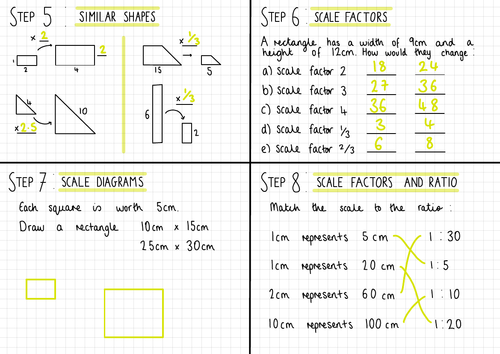 STEP 5 : SIMILAR SHAPES
x 2
1
2
2
4
x 1/3
15
5
4
10
x 2.5
6
x 1/3
2
STEP 6 : SCALE FACTORS
A rectangle has a width of 9cm and a
height of 12cm. How would they change :
a) Scale factor 2 18 24
b) Scale factor 3 27 36
c) Scale factor 4 36 48
d) Scale factor 1/3 3 4
e) Scale factor 2/3 6 8
STEP 7 : SCALE DIAGRAMS
Each square is worth 5cm.
Draw a rectangle 10cm x 15cm
25cm x 30cm
STEP 8 : SCALE FACTORS AND RATIO
Match the scale to the ratio :
1cm represents 5 cm 1 : 30
1cm represents 20 cm 1 : 5
2cm represents 60 cm 1 : 10
10cm represents 100 cm 1 : 20